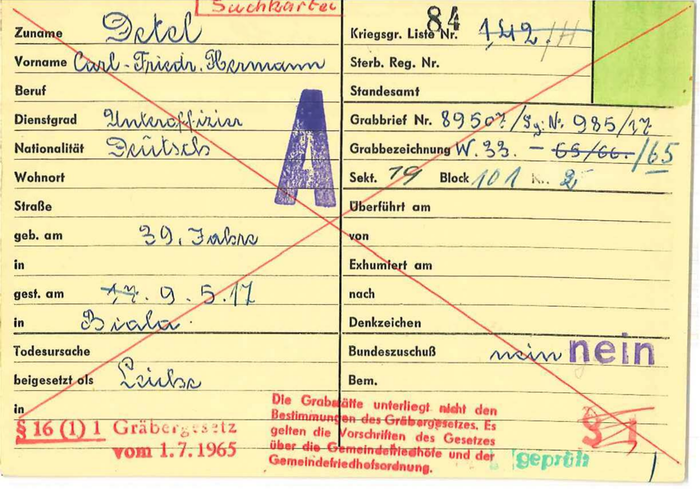 Suchkartei
Zuname Detel
Vorname Carl-Friedr. Hermann
Beruf
Dienstgrad Unteroffizier
Nationalität Deutsch
Wohnort
Straße
geb. am 39. Jahre
in
gest. am 17. 9.5.17
in Biala.
Todesursache
beigesetzt als Leiche
in
§ 16 (1) 1 Gräbergesetz
vom 1.7.1965
A
84
Kriegsgr. Liste Nr. 142
Sterb. Reg. Nr.
Standesamt
Grabbrief Nr. 89507/Sg. Nr. 985/17
Grabbezeichnung W. 33. - 65/66. /65
Sekt. 19 Block 101 2
Überführt am
von
Exhumiert am
nach
Denkzeichen
Bundeszuschuß nein nein
Bem.
Die Grabstätte unterliegt nicht den
Bestimmungen des Gräbergesetzes. Es
gelten die Vorschriften des Gesetzes
über die Gemeindefriedhöfe und der
Gemeindefriedhofsordnung.
§ 1
geprüft